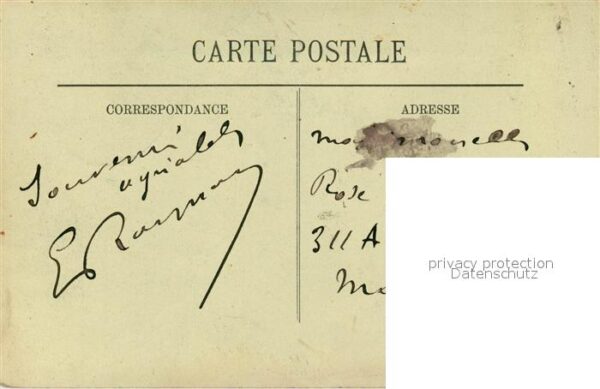 CARTE POSTALE
CORRESPONDANCE
Souvenir
E. Raymond
ADRESSE
Mademoiselle
Rose
311 A
Ma
privacy protection
Datenschutz